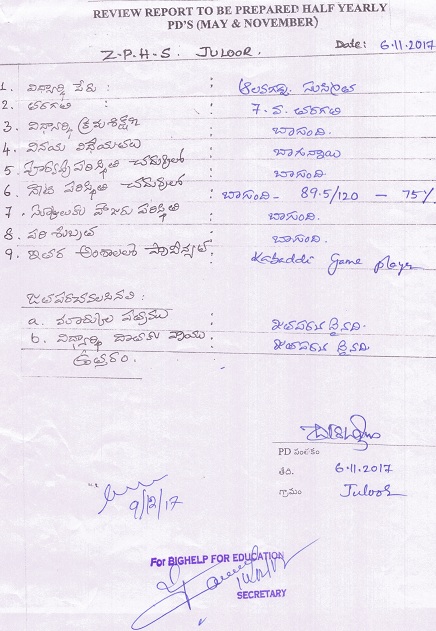 REVIEW REPORT TO BE PREPARED HALF YEARLY
PD'S (MAY & NOVEMBER)
Z.P.H.S. JULOOR.
Date: 6.11.2017
1. విద్యార్థి పేరు :
2. తరగతి : 7. వ. తరగతి
3. విద్యార్థి క్రమశిక్షణ : బాగుంది.
4. వినయ విధేయతలు : బాగున్నాయి
5. పరిస్థితి చదువులో : బాగుంది.
6. పరిస్థితి చదువులో : బాగుంది - 89.5/120 - 75%
7. హాజరు పరిస్థితి : బాగుంది.
8. పరిశుభ్రత : బాగుంది.
9. ఇతర అంశాలలో : Kabaddi Game player
జతపరచవలసినవి :
a. మార్కుల పత్రము :
b. విద్యార్థి దాతకు వ్రాయు :
ఉత్తరం.
PD సంతకం
తేది. 6.11.2017
గ్రామం Juloor
9/12/17
For BIGHELP FOR EDUCATION
SECRETARY